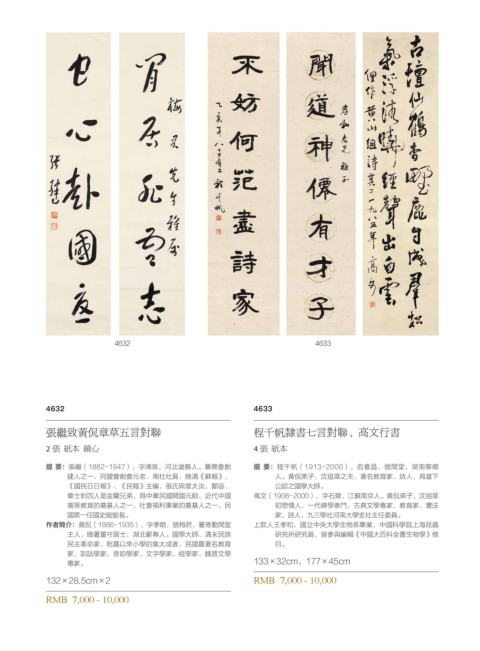 閒居非吾志
梅君先生雅屬
甘心赴國憂
張繼
聞道神僊有才子
孝和老兄雅正
不妨何范盡詩家
乙亥年八十有二程千帆
古壇仙鶴杳野鹿自成群
經聲出白雲
俚作黃山組詩其二一九八五年高文
4632
4633
4632
張繼致黃侃章草五言對聯
2張 紙本 鏡心
提 要：張繼（1882-1947），字溥泉，河北滄縣人。華興會創
建人之一，同盟會創會元老，南社社員，幾遇《蘇報》、
《國民日日報》、《民報》主編，張氏與章太炎、鄒容、
章士釗四人是金蘭兄弟，爲中華民國開國元勛、近代中國
高等教育的奠基人之一，社會福利事業的奠基人之一，民
國第一任國史館館長。
作者簡介：黃侃（1886-1935），字季剛，號梅君，署寄勤閒室
主人，晚署量守居士，湖北蘄春人。國學大師、清末民族
民主革命家、乾嘉以來小學的集大成者，民國最著名教育
家、訓詁學家、音韵學家、文字學家、經學家、魏晉文學
專家。
132×28.5cm×2
RMB 7,000 - 10,000
4633
程千帆隸書七言對聯、高文行書
4張 紙本
提 要：程千帆（1913-2000），名會昌，號閒堂，湖南寧鄉
人。黃侃弟子，沈祖棻之夫，著名教育家、詩人，爲當下
公認之國學大師。
高文（1908-2000），字石齋，江蘇南京人。黃侃弟子，沈祖棻
初戀情人，一代碑學泰鬥，古典文學專家、教育家、書法
家、詩人，九三學社河南大學支社主任委員。
上款人王孝和，國立中央大學生物系畢業，中國科學院上海昆蟲
研究所研究員，曾參與編輯《中國大百科全書生物學》條
目。
133×32cm、177×45cm
RMB 7,000 - 10,000